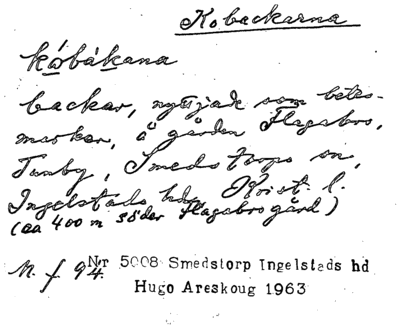 Kobackarna
kåbákana
backar, nyttjade som betes-
marker, å gården Flagabro,
Tunby, Smedstorps sn,
Ingelstads hd, Krist. l.
(ca 400 m söder Flagabro gård)
N. f 94.
Nr 5008 Smedstorp Ingelstads hd
Hugo Areskoug 1963